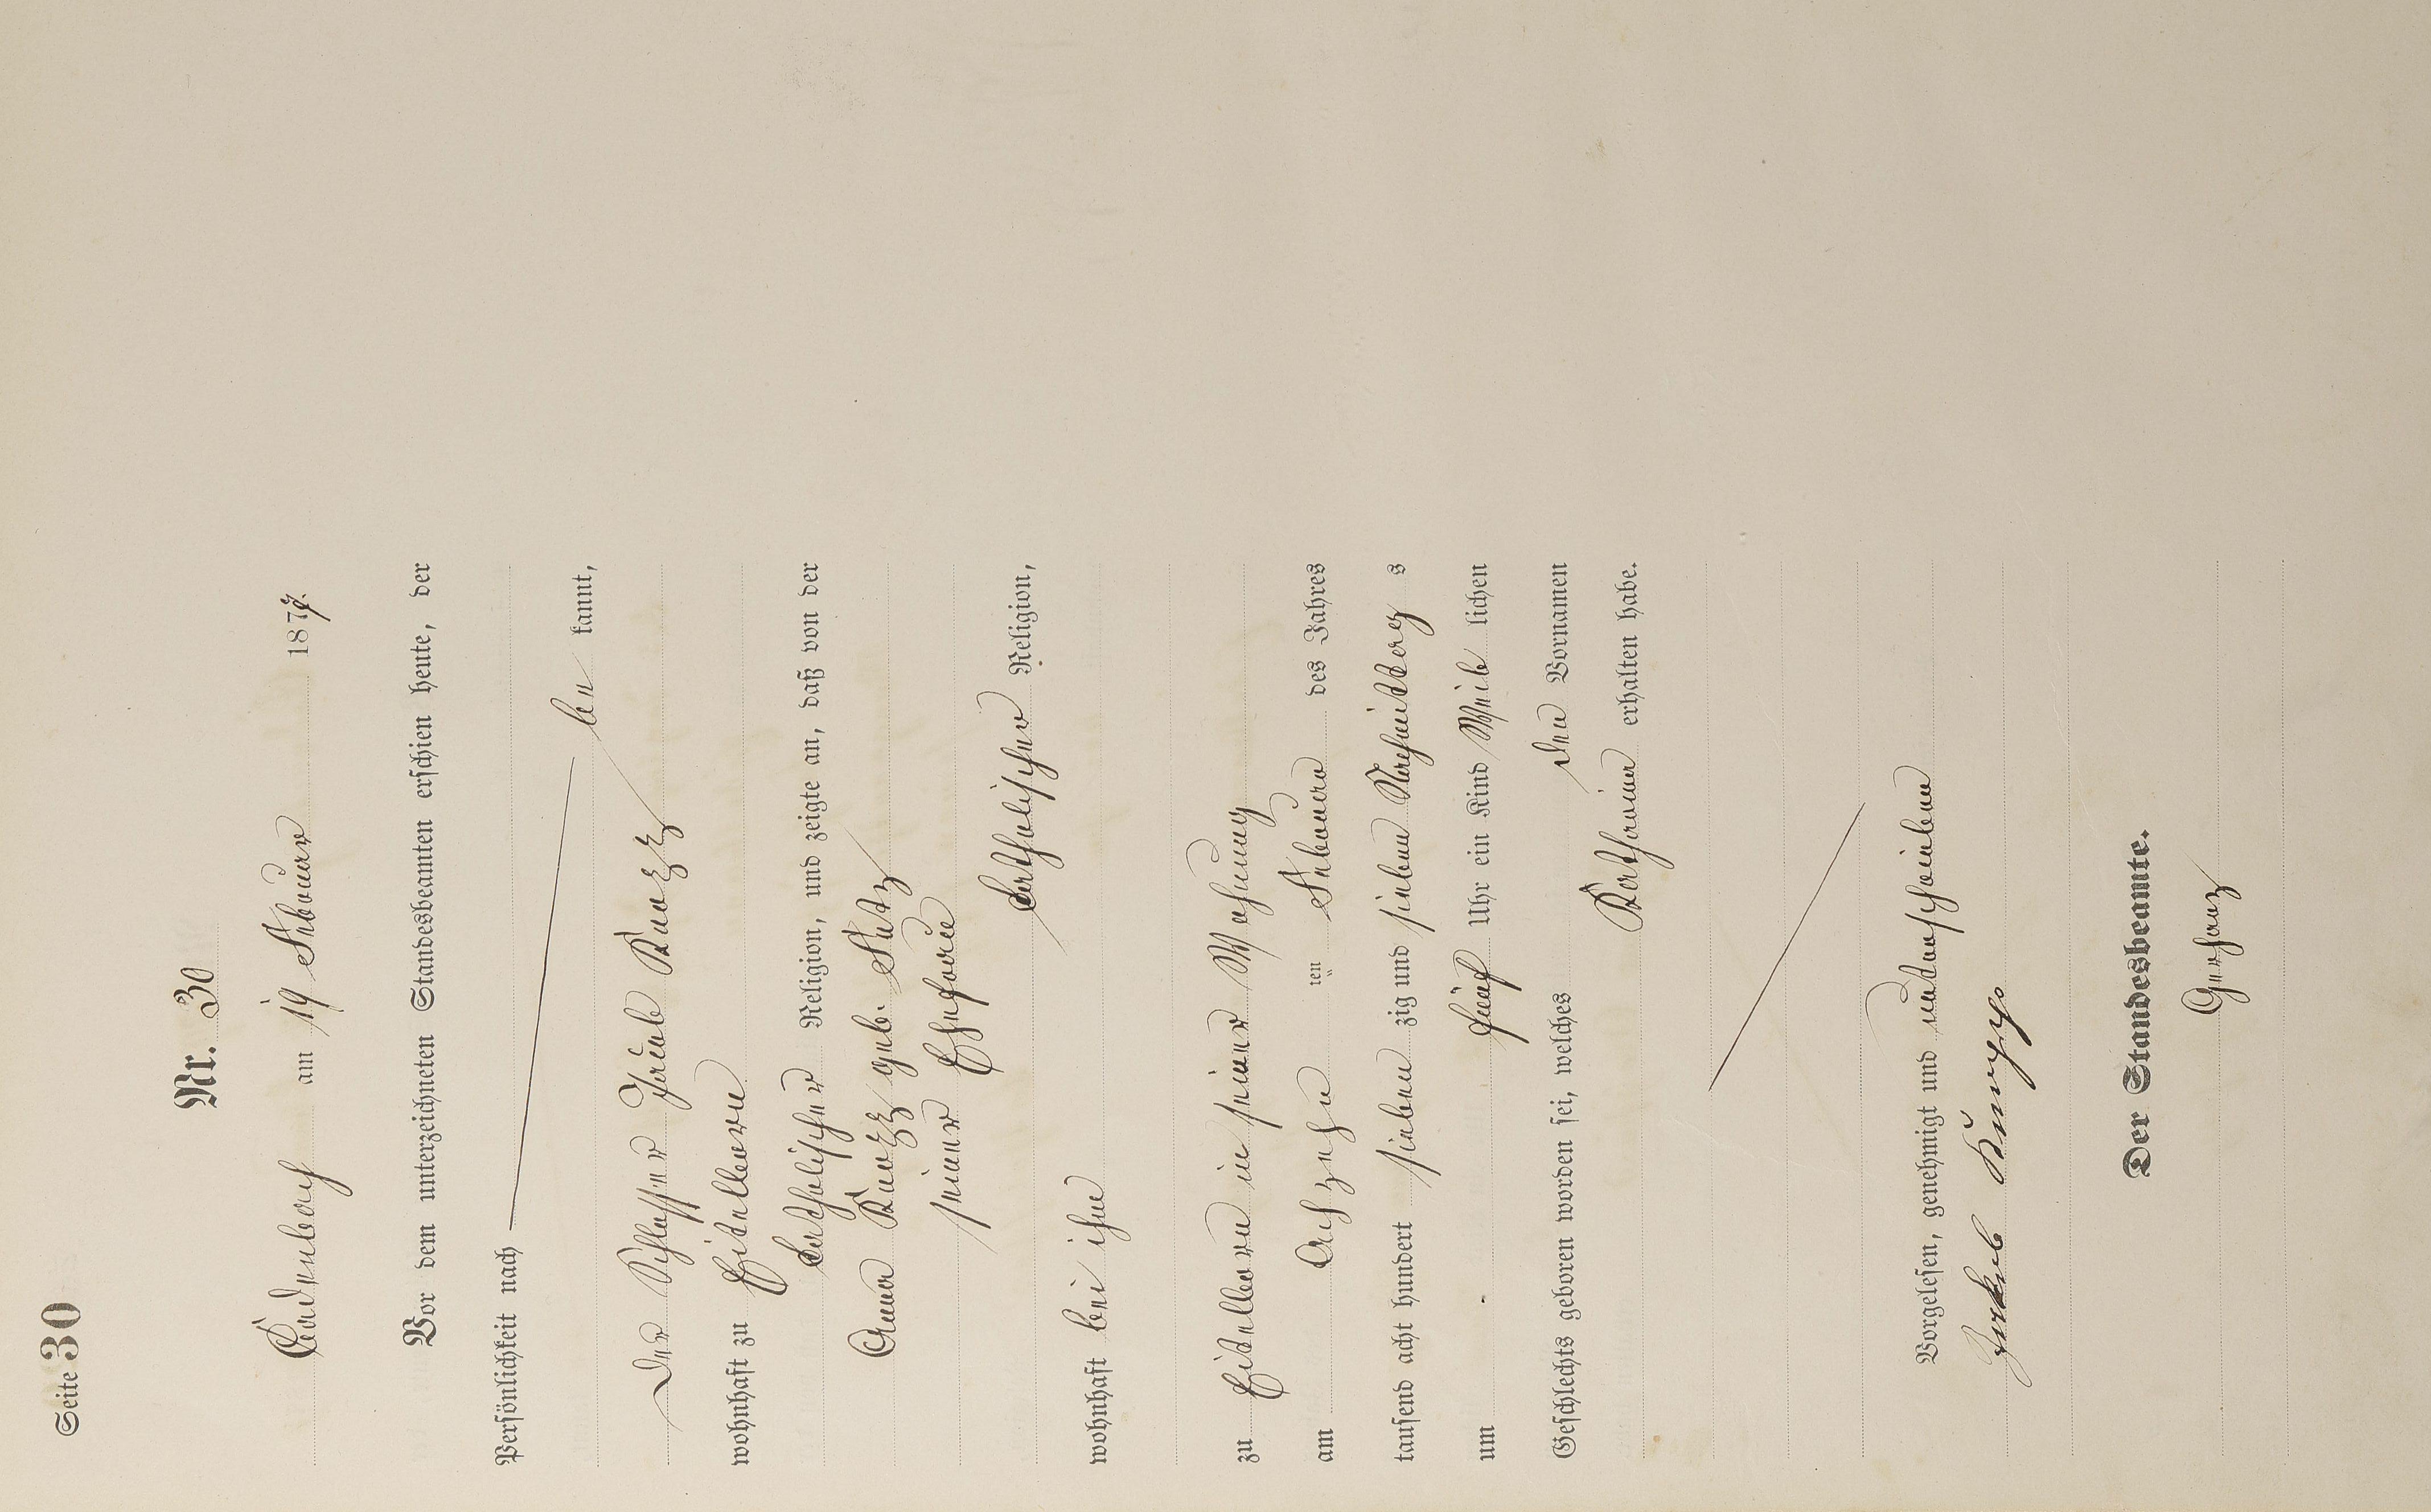 Seite 30
Nr. 30
Cadenbach am 19 Februar 1877.
Vor dem unterzeichneten Standesbeamten erschien heute, der
Persönlichkeit nach
be kannt,
der Schlosser Jacob
wohnhaft zu Eitelborn
katholischer Religion, und zeigte an, daß von der
Anna geb.
seiner Ehefrau
katholischer Religion,
wohnhaft bei ihm
zu Eitelborn in seiner Wohnung
am achtzehn ten Februar des Jahres
tausend acht hundert sieben zig und sieben Nachmittag s
um fünf Uhr ein Kind Weib lichen
Geschlechts geboren worden sei, welches den Vornamen
Katharina erhalten habe.
Vorgelesen, genehmigt und unterschrieben
Jakob
Der Standesbeamte.
Gerharz